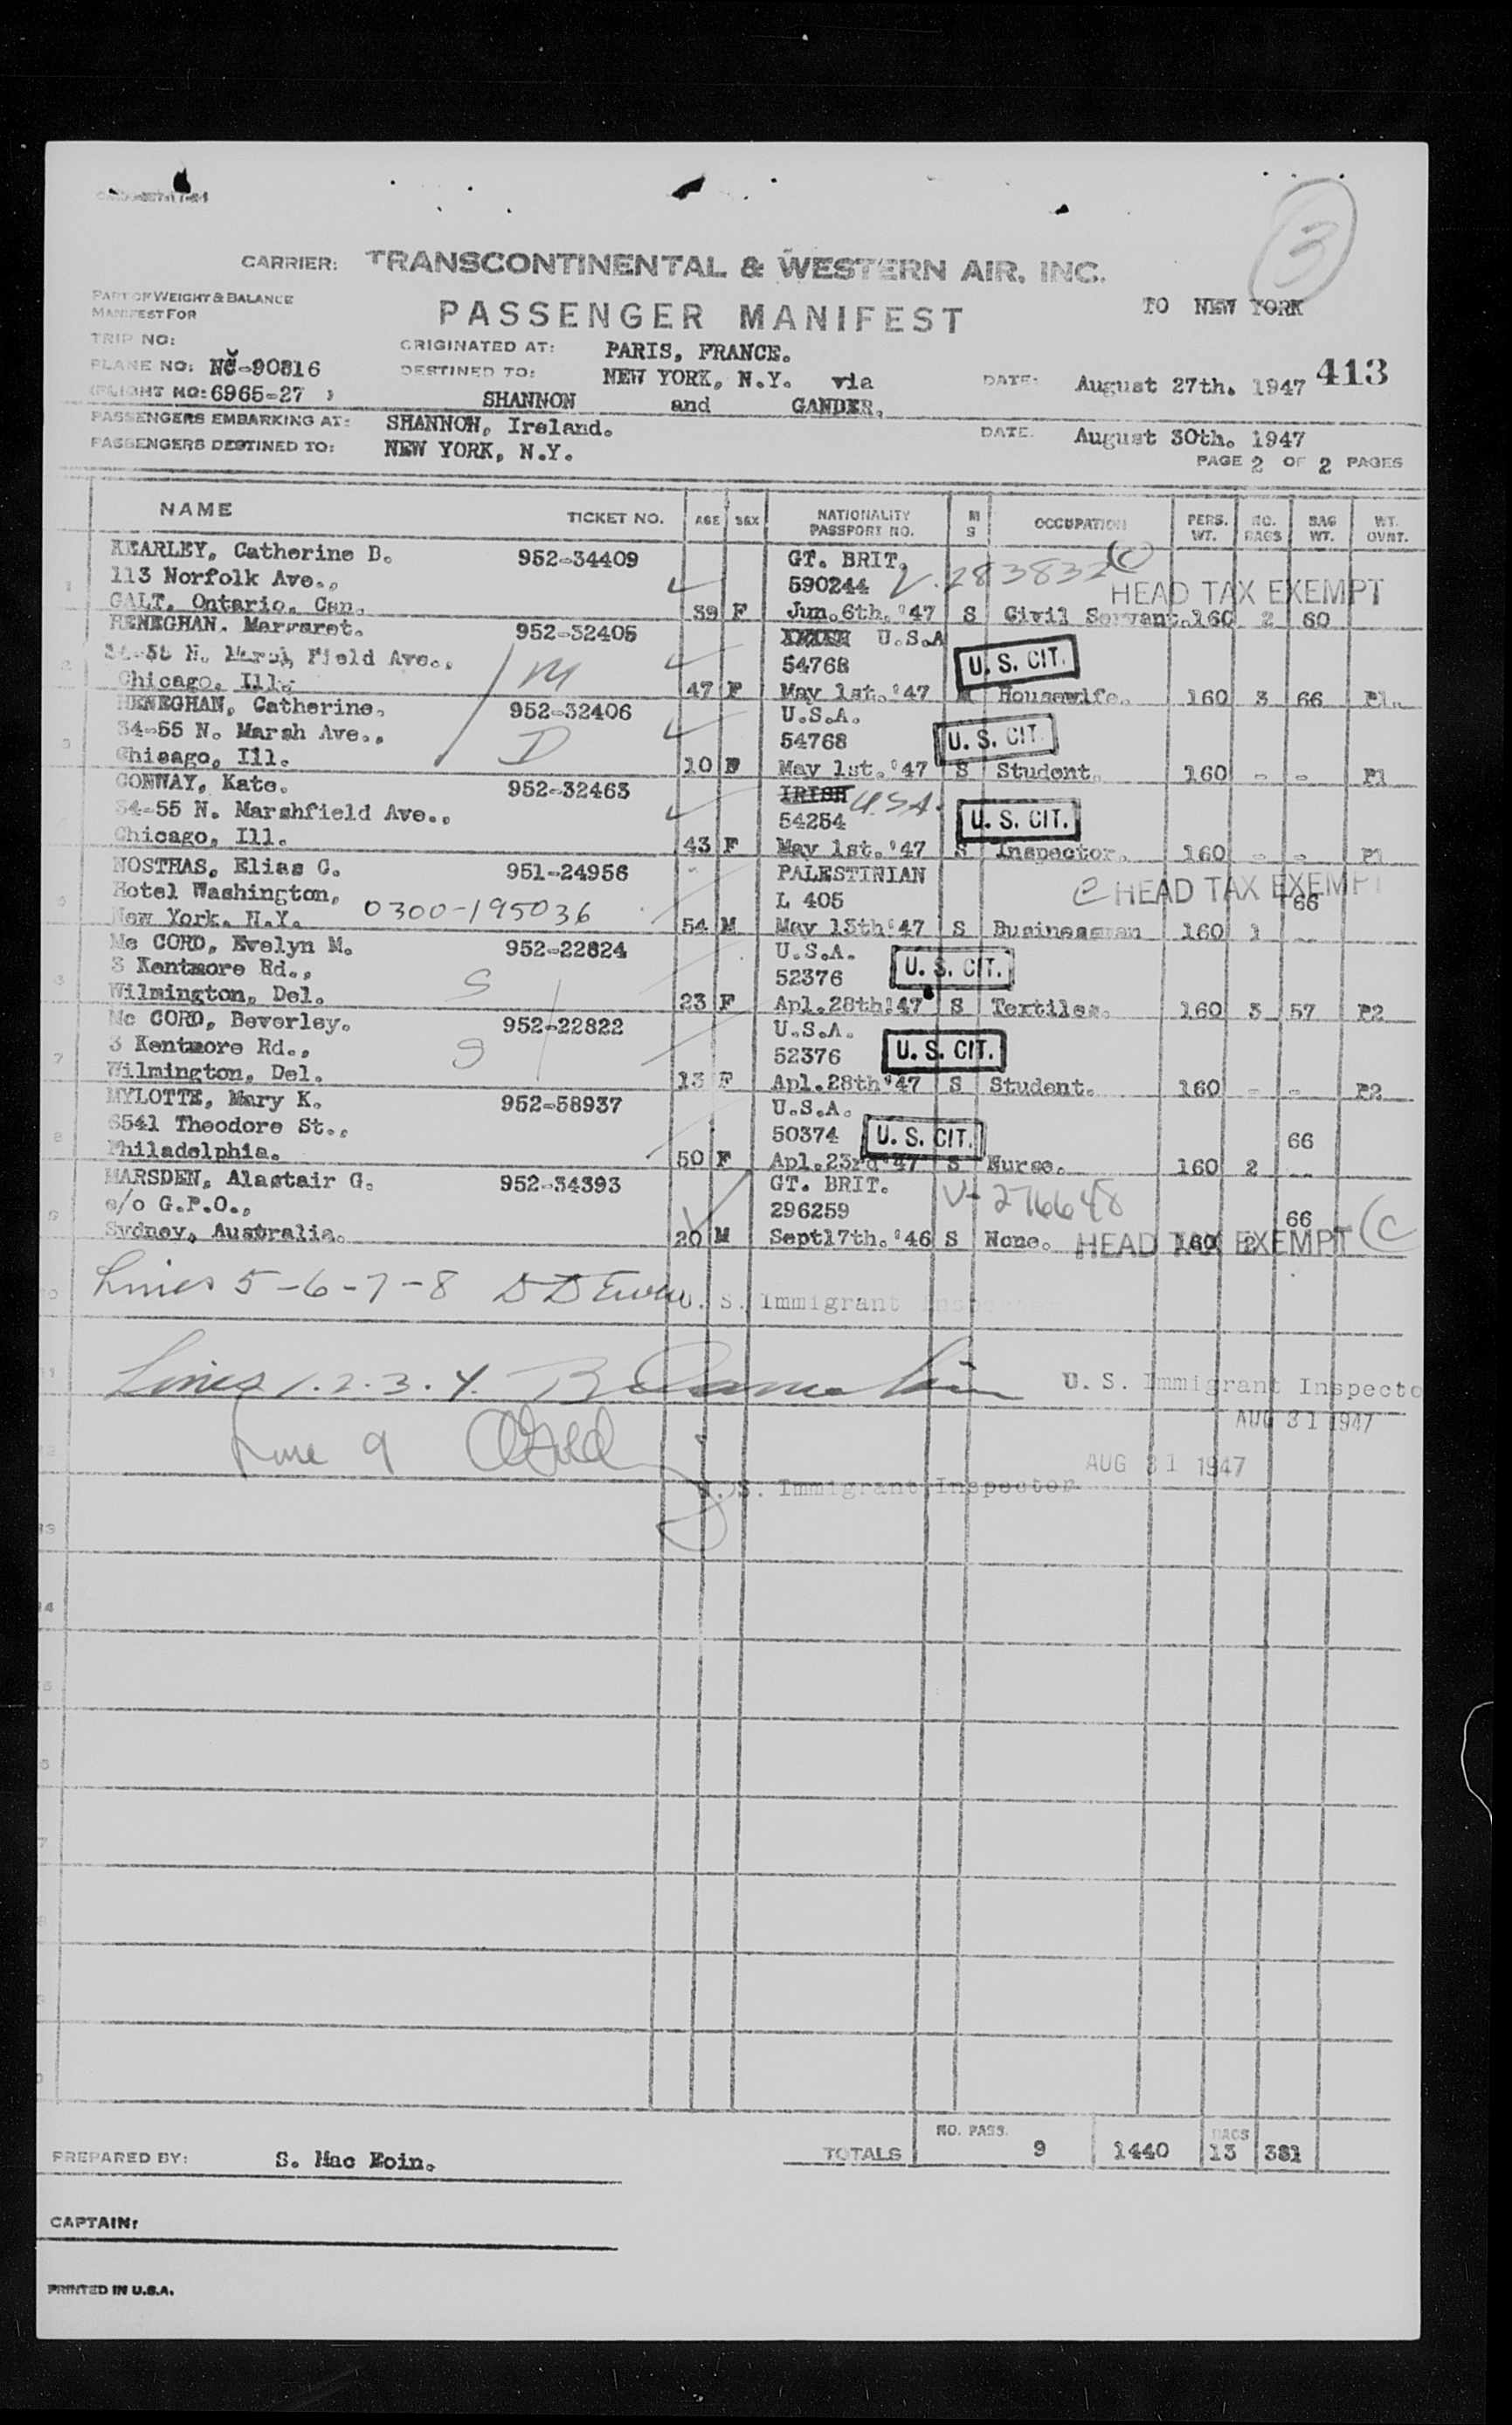 CARRIER: TRANSCONTINENTAL & WESTERN AIR, INC.
3
PART OF WEIGHT & BALANCE
MANIFEST FOR
PASSENGER MANIFEST
TO NEW YORK
TRIP NO:
ORIGINATED AT: PARIS, FRANCE.
PLANE NO: NC-90816
DESTINED TO: NEW YORK, N.Y. via
DATE: August 27th. 1947 413
(FLIGHT NO: 6965-27 )
SHANNON and GANDER.
PASSENGERS EMBARKING AT: SHANNON, Ireland.
DATE. August 30th. 1947
PASSENGERS DESTINED TO: NEW YORK, N.Y.
PAGE 2 OF 2 PAGES
NAME TICKET NO. AGE SEX NATIONALITY PASSPORT NO. M S OCCUPATION PERS. WT. NO. BAGS BAG WT. WT. OVNT.
1 KEARLEY, Catherine B. 952-34409 GT. BRIT. (C)
113 Norfolk Ave., 590244 V.283832 HEAD TAX EXEMPT
GALT. Ontario. Can. 39 F Jun.6th.'47 S Civil Servant.160 2 60
2 HENEGHAN. Margaret. 952-32405 U.S.A
34-55 N. Field Ave., M 54768 U. S. CIT.
Chicago. Ill. 47 F May 1st.'47 M Housewife. 160 3 66 P1.
3 HENEGHAN, Catherine. 952-32406 U.S.A.
34-55 N. Marsh Ave., D 54768 U. S. CIT.
Chicago, Ill. 10 F May 1st.'47 S Student. 160 - - P1
CONWAY, Kate. 952-32463 IRISH U.S.A.
34-55 N. Marshfield Ave., 54254 U. S. CIT.
Chicago, Ill. 43 F May 1st.'47 S Inspector. 160 - - P1
NOSTHAS, Elias C. 951-24956 PALESTINIAN
Hotel Washington, 0300-195036 L 405 C HEAD TAX EXEMPT 66
New York. N.Y. 54 M May 13th'47 S Businessman 160 1
Mc CORD, Evelyn M. 952-22824 U.S.A.
3 Kentmore Rd., S 52376 U. S. CIT.
Wilmington, Del. 23 F Apl.28th'47 S Textiles. 160 3 57 P2
7 Mc CORD, Beverley. 952-22822 U.S.A.
3 Kentmore Rd., S 52376 U. S. CIT.
Wilmington, Del. 13 F Apl.28th'47 S Student. 160 - - P2
8 MYLOTTE, Mary K. 952-58937 U.S.A.
6541 Theodore St., 50374 U. S. CIT. 66
Philadelphia. 50 F Apl.23rd'47 S Nurse. 160 2
9 MARSDEN, Alastair G. 952-34393 GT. BRIT. V-276648
c/o G.P.O., 296259 66
Sydney, Australia. 20 M Sept17th.'46 S None. HEAD TAX EXEMPT 160 2 (C
Lines 5-6-7-8 U. S. Immigrant Inspector
Lines 1.2.3.4. U. S. Immigrant Inspecto
AUG 31 1947
Line 9
AUG 31 1947
U. S. Immigrant Inspector
13
14
PREPARED BY: S. Mac Eoin.
TOTALS NO. PASS. 9 1440 BAGS 13 381
CAPTAIN:
PRINTED IN U.S.A.